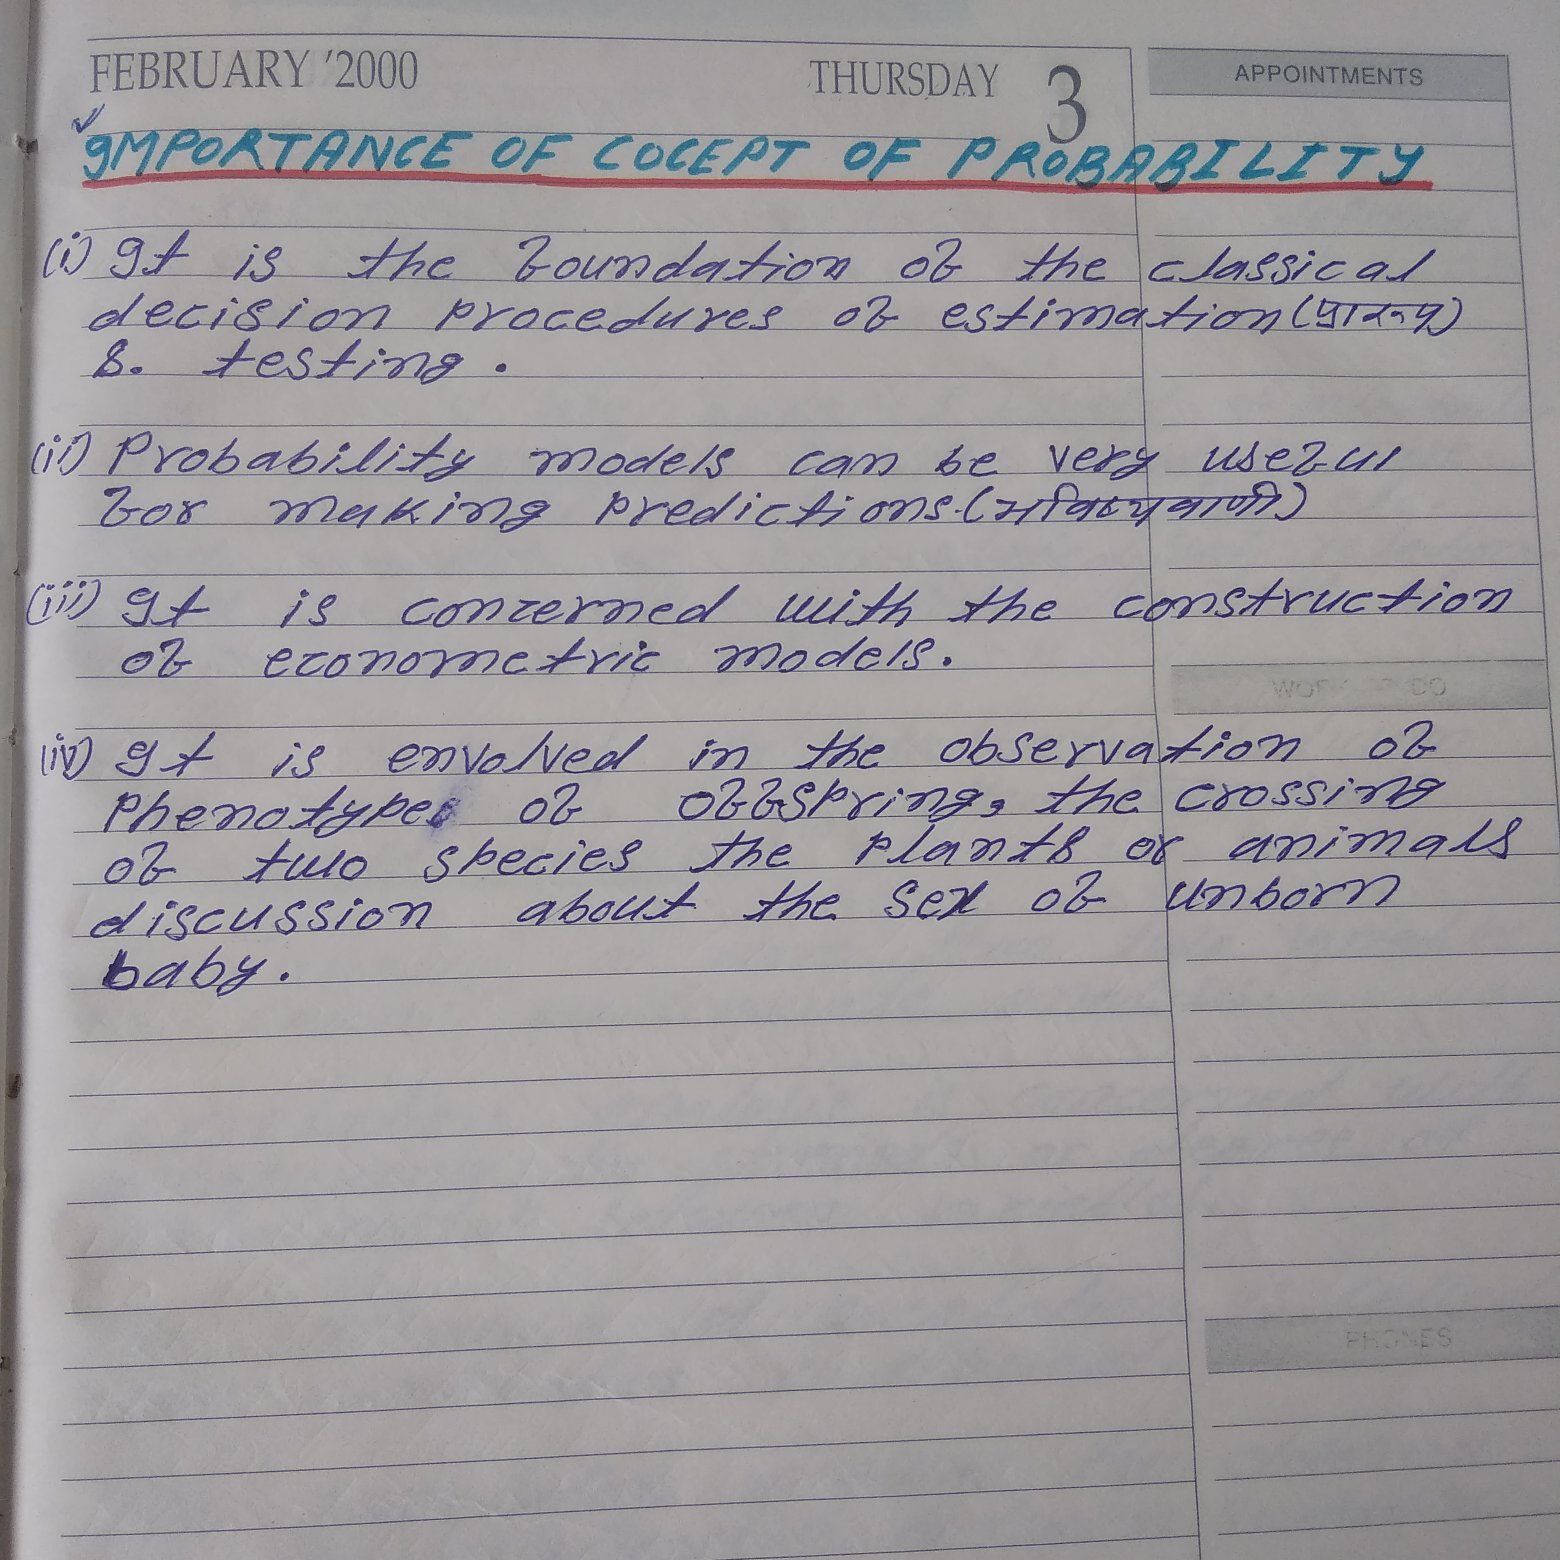 FEBRUARY '2000 THURSDAY 3 APPOINTMENTS
IMPORTANCE OF COCEPT OF PROBABILITY
(i) It is the foundation of the classical
decision procedures of estimation (प्राक्कलन)
&. testing.
(ii) Probability models can be very useful
for making predictions.(भविष्यवाणी)
(iii) It is concerned with the construction
of econometric models.
WORK TO DO
(iv) It is envolved in the observation of
phenotypes of offspring, the crossing
of two species the plants or animals
discussion about the sex of unborn
baby.
PHONES